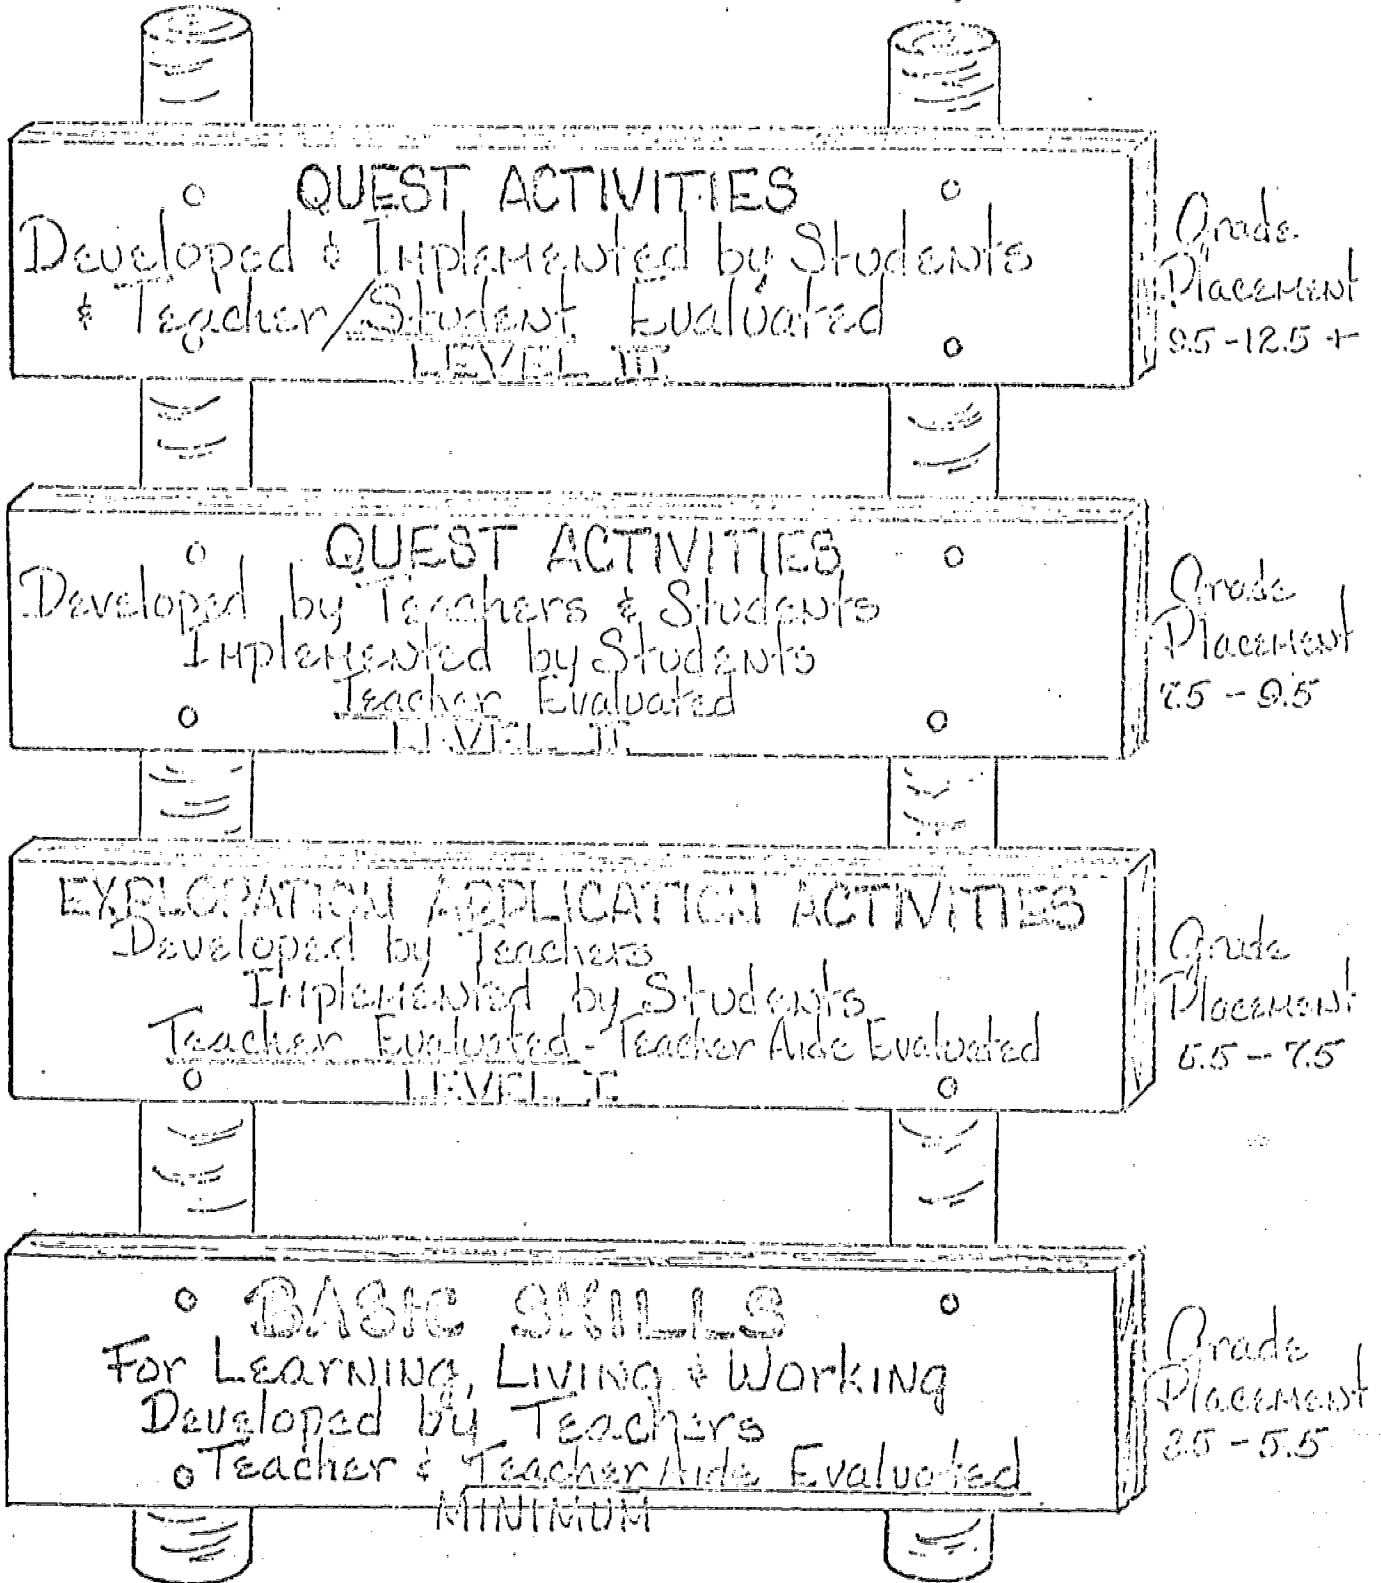 QUEST ACTIVITIES
Developed & Implemented by Students
& Teacher/Student Evaluated
LEVEL III
Grade
Placement
9.5 - 12.5 +
QUEST ACTIVITIES
Developed by Teachers & Students
Implemented by Students
Teacher Evaluated
LEVEL II
Grade
Placement
7.5 - 9.5
EXPLORATION APPLICATION ACTIVITIES
Developed by Teachers
Implemented by Students
Teacher Evaluated - Teacher Aide Evaluated
LEVEL I
Grade
Placement
5.5 - 7.5
BASIC SKILLS
For Learning, Living & Working
Developed by Teachers
Teacher & Teacher Aide Evaluated
MINIMUM
Grade
Placement
3.5 - 5.5